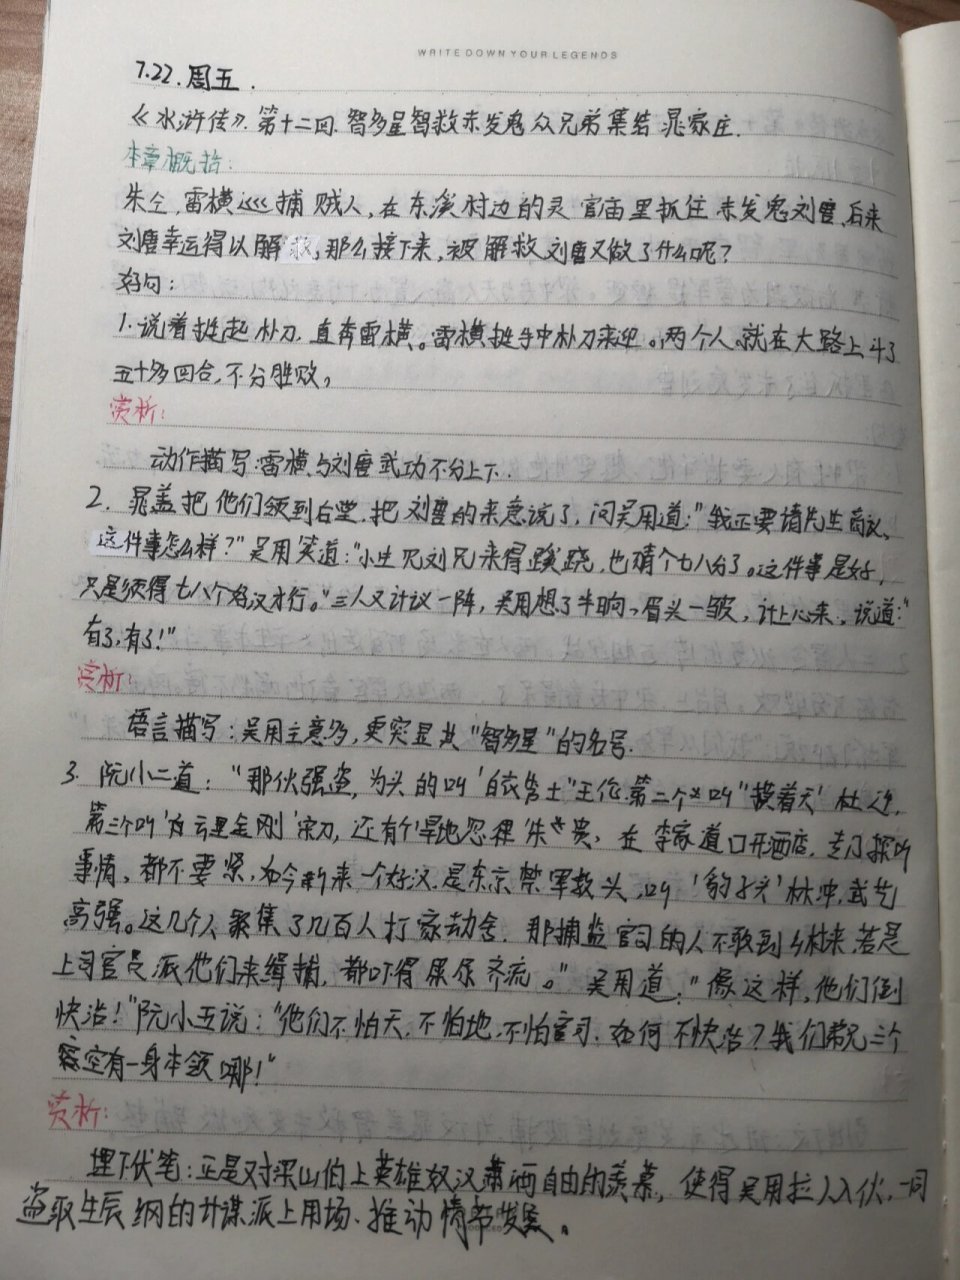 WRITE DOWN YOUR LEGENDS
7.22.周五.
《水浒传》.第十二回.智多星智救赤发鬼 众兄弟集结晁家庄.
本章概括:
朱仝,雷横巡捕贼人,在东溪村边的灵官庙里抓住赤发鬼刘唐,后来
刘唐幸运得以解救,那么接下来,被解救刘唐又做了什么呢?
好句:
1.说着挺起朴刀,直奔雷横。雷横挺手中朴刀来迎。两个人就在大路上斗了
五十多回合,不分胜败,
赏析:
动作描写:雷横与刘唐武功不分上下.
2. 晁盖把他们领到后堂,把刘唐的来意说了,问吴用道:"我正要请先生商议,
这件事怎么样?"吴用笑道:"小生见刘兄来得蹊跷,也猜个七八分了。这件事是好,
只是须得七八个好汉才行。"三人又计议一阵,吴用想了半晌,眉头一皱,计上心来,说道:"
有了,有了!"
赏析:
语言描写:吴用主意多,更突显其"智多星"的名号.
3. 阮小二道:"那伙强盗,为头的叫'白衣秀士"王伦.第二个叫"摸着天'杜迁,
第三个叫'云里金刚'宋万,还有个旱地忽律'朱贵,在李家道口开酒店,专门探听
事情,都不要紧,如今新来一个好汉,是东京禁军教头,叫'豹子头'林冲,武艺
高强。这几个人聚集了几百人打家劫舍.那捕盗官司的人不敢到乡村来,若是
上司官员派他们来缉捕,都吓得屎尿齐流。"吴用道:"像这样,他们倒
快活!"阮小五说:"他们不怕天,不怕地,不怕官司,如何不快活?我们弟兄三个
空有一身本领哪!"
赏析:
埋下伏笔:正是对梁山伯上英雄好汉潇洒自由的羡慕,使得吴用拉人入伙,一同
盗取生辰纲的计谋派上用场.推动情节发展。